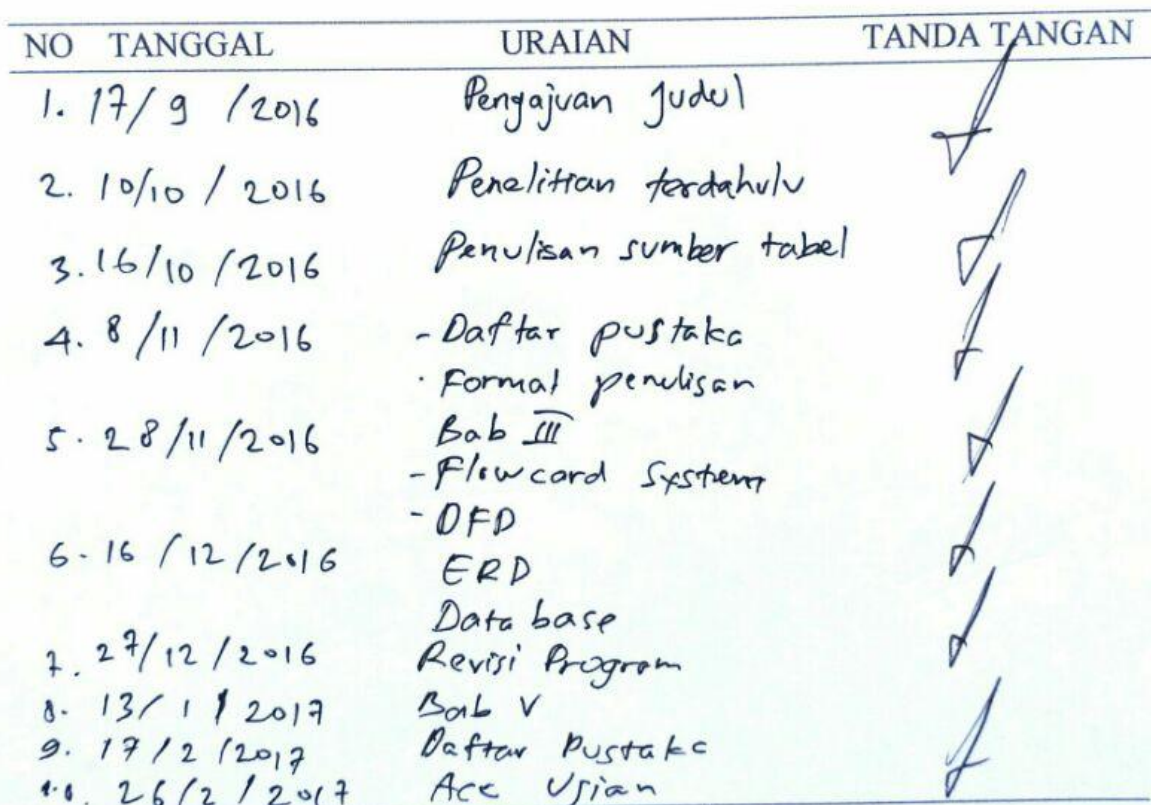 NO TANGGAL URAIAN TANDA TANGAN
1. 17/9/2016 Pengajuan Judul
2. 10/10/2016 Penelitian terdahulu
3. 16/10/2016 Penulisan sumber tabel
4. 8/11/2016 - Daftar pustaka
- Format penulisan
5. 28/11/2016 Bab III
- Flowcard System
- DFD
6. 16/12/2016 ERD
Data base
7. 27/12/2016 Revisi Program
8. 13/1/2017 Bab V
9. 17/2/2017 Daftar Pustaka
10. 26/2/2017 Acc Ujian